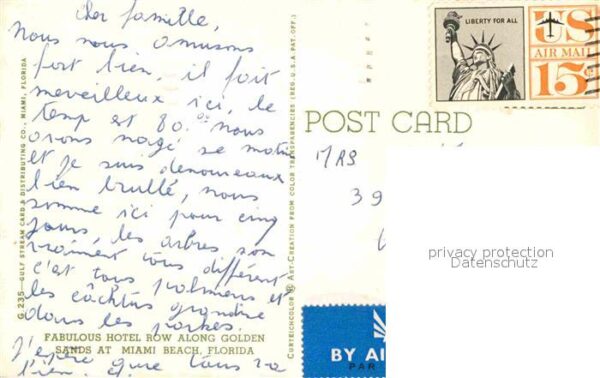 Cher famille,
Nous nous amusons
fort bien, il fait
merveilleux ici, le
temp et 80.° nous
avons nagé se matin
et je suis denouveaux
bien brullé, nous
somme ici pour cinq
jours, les arbres son
vraiment tous différent
c'est tous palmiers et
les câchtus grandre
dans les parkes.
J'épère que tous va
bien.
FABULOUS HOTEL ROW ALONG GOLDEN
SANDS AT MIAMI BEACH, FLORIDA
G.235—GULF STREAM CARD & DISTRIBUTING CO., MIAMI, FLORIDA
CURTEICHCOLOR ® ART-CREATION FROM COLOR TRANSPARENCIES (REG. U.S.A. PAT. OFF.)
POST CARD
LIBERTY FOR ALL
US
AIR MAIL
15¢
MRS
39
privacy protection
Datenschutz
BY AI
PAR